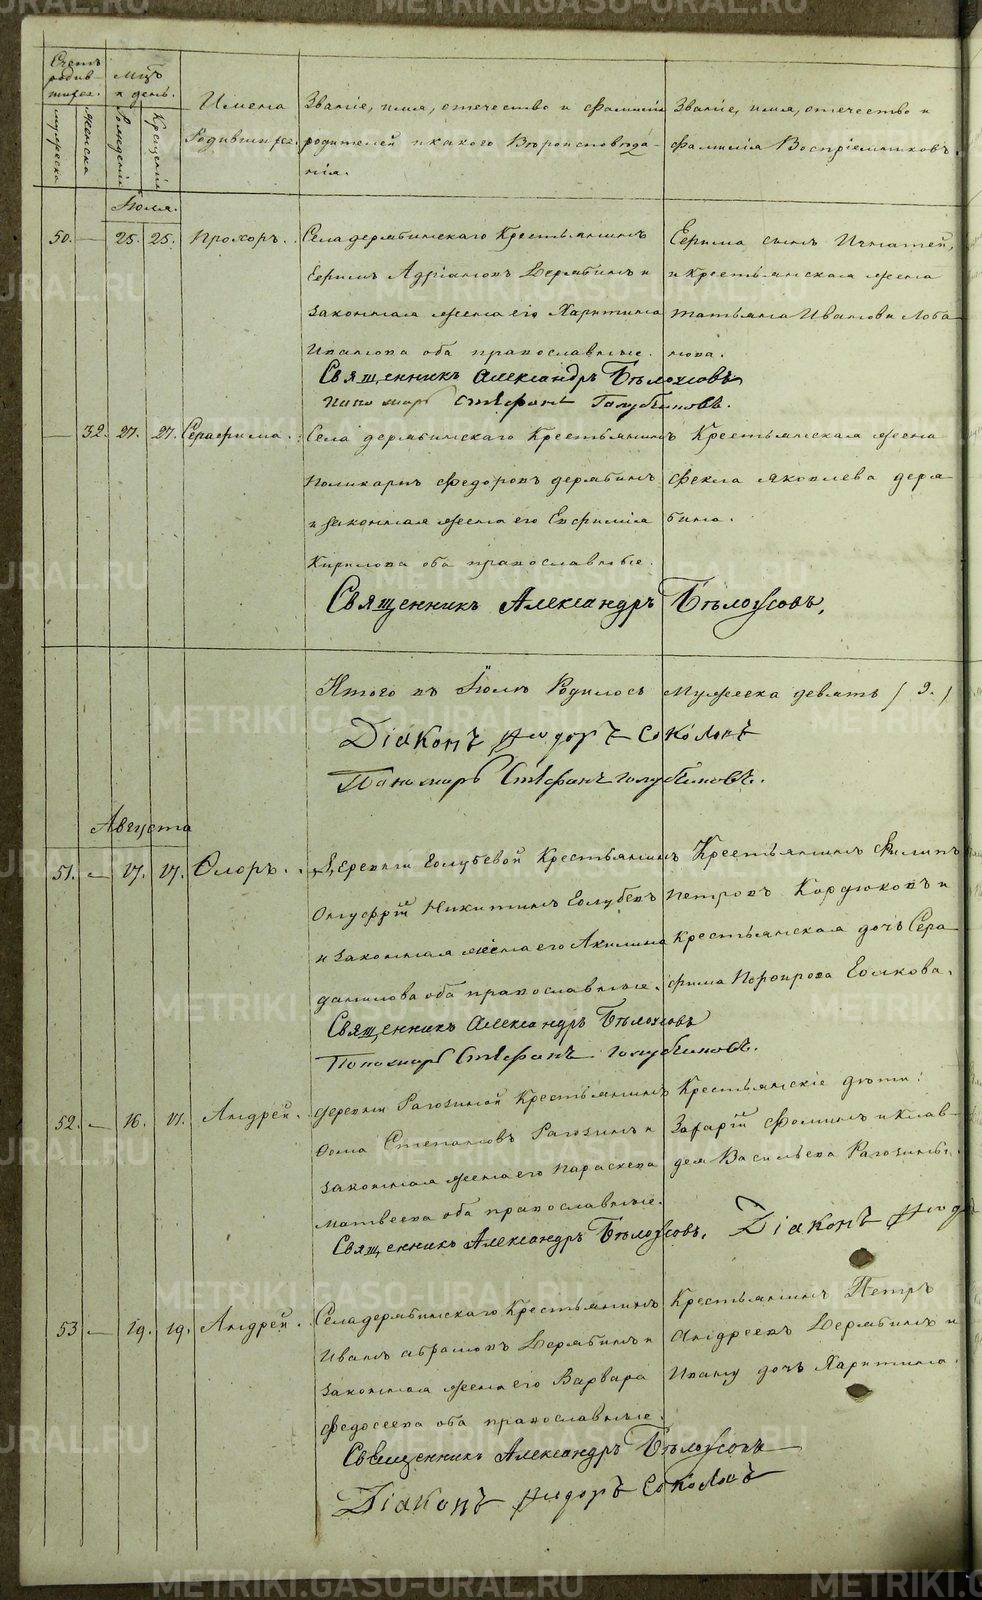 Счетъ родив-шихся.
Мцъ и день.
мужеска
женска
Рожденія
Крещенія
Имена Родившихся.
Званіе, имя, отечество и фамилія
родителей и какого Вѣроисповѣда-
нія.
Званіе, имя, отечество и
фамилія Воспріемниковъ.
Іюля.
50. — 25. 25. Прохоръ. Села дерябинскаго Крестьянинъ
Ефимъ Адріановъ Дерябинъ и
законная жена его Харитина
Иванова оба православные.
Ефима сынъ Игнатей,
и Крестьянская жена
татьяна Иванова Лоба
нова.
Священникъ Александръ Бѣлоусовъ
Пономарь Стефанъ Голубчиковъ.
— 32. 27. 27. Серафима. Села дерябинскаго Крестьянинъ
Поликарпъ Федоровъ дерябинъ
и законная жена его Евфимія
Кирилова оба православные.
Крестьянская жена
Фекла яковлева деря
бина.
Священникъ Александръ Бѣлоусовъ.
Итого въ Іюлѣ Родилось Мужеска девять (9.)
Діаконъ Ѳидоръ Соколовъ
Пономарь Стефанъ голубчиковъ.
Августа
51. — 17. 17. Флоръ. Деревни Голубевой Крестьянинъ
Онуфрій Никитинъ Голубевъ
и законная жена его Акилина
данилова оба православные.
Крестьянинъ Филипъ
Петровъ Кордюковъ и
Крестьянская дочь Сера
фима Порфирова Ежкова.
Священникъ Александръ Бѣлоусовъ
Пономарь Стефанъ голубчиковъ.
52. — 16. 17. Андрей. деревни Рагозиной Крестьянинъ
Фома Степановъ Рагозинъ и
законная жена его Параскева
матвеева оба православные.
Крестьянскіе дѣти:
Захарій Фоминъ и Клав-
дея Васильева Рагозины.
Священникъ Александръ Бѣлоусовъ. Діаконъ
53 — 19. 19. Андрей. Села дерябинскаго Крестьянинъ
Иванъ абрамовъ Дерябинъ и
законная жена его Варвара
федосеева оба православные.
Крестьянинъ Петръ
Андреевъ Дерябинъ и
Ивану дочь Харитина.
Священникъ Александръ Бѣлоусовъ
Діаконъ Ѳидоръ Соколовъ
METRIKI.GASO-URAL.RU